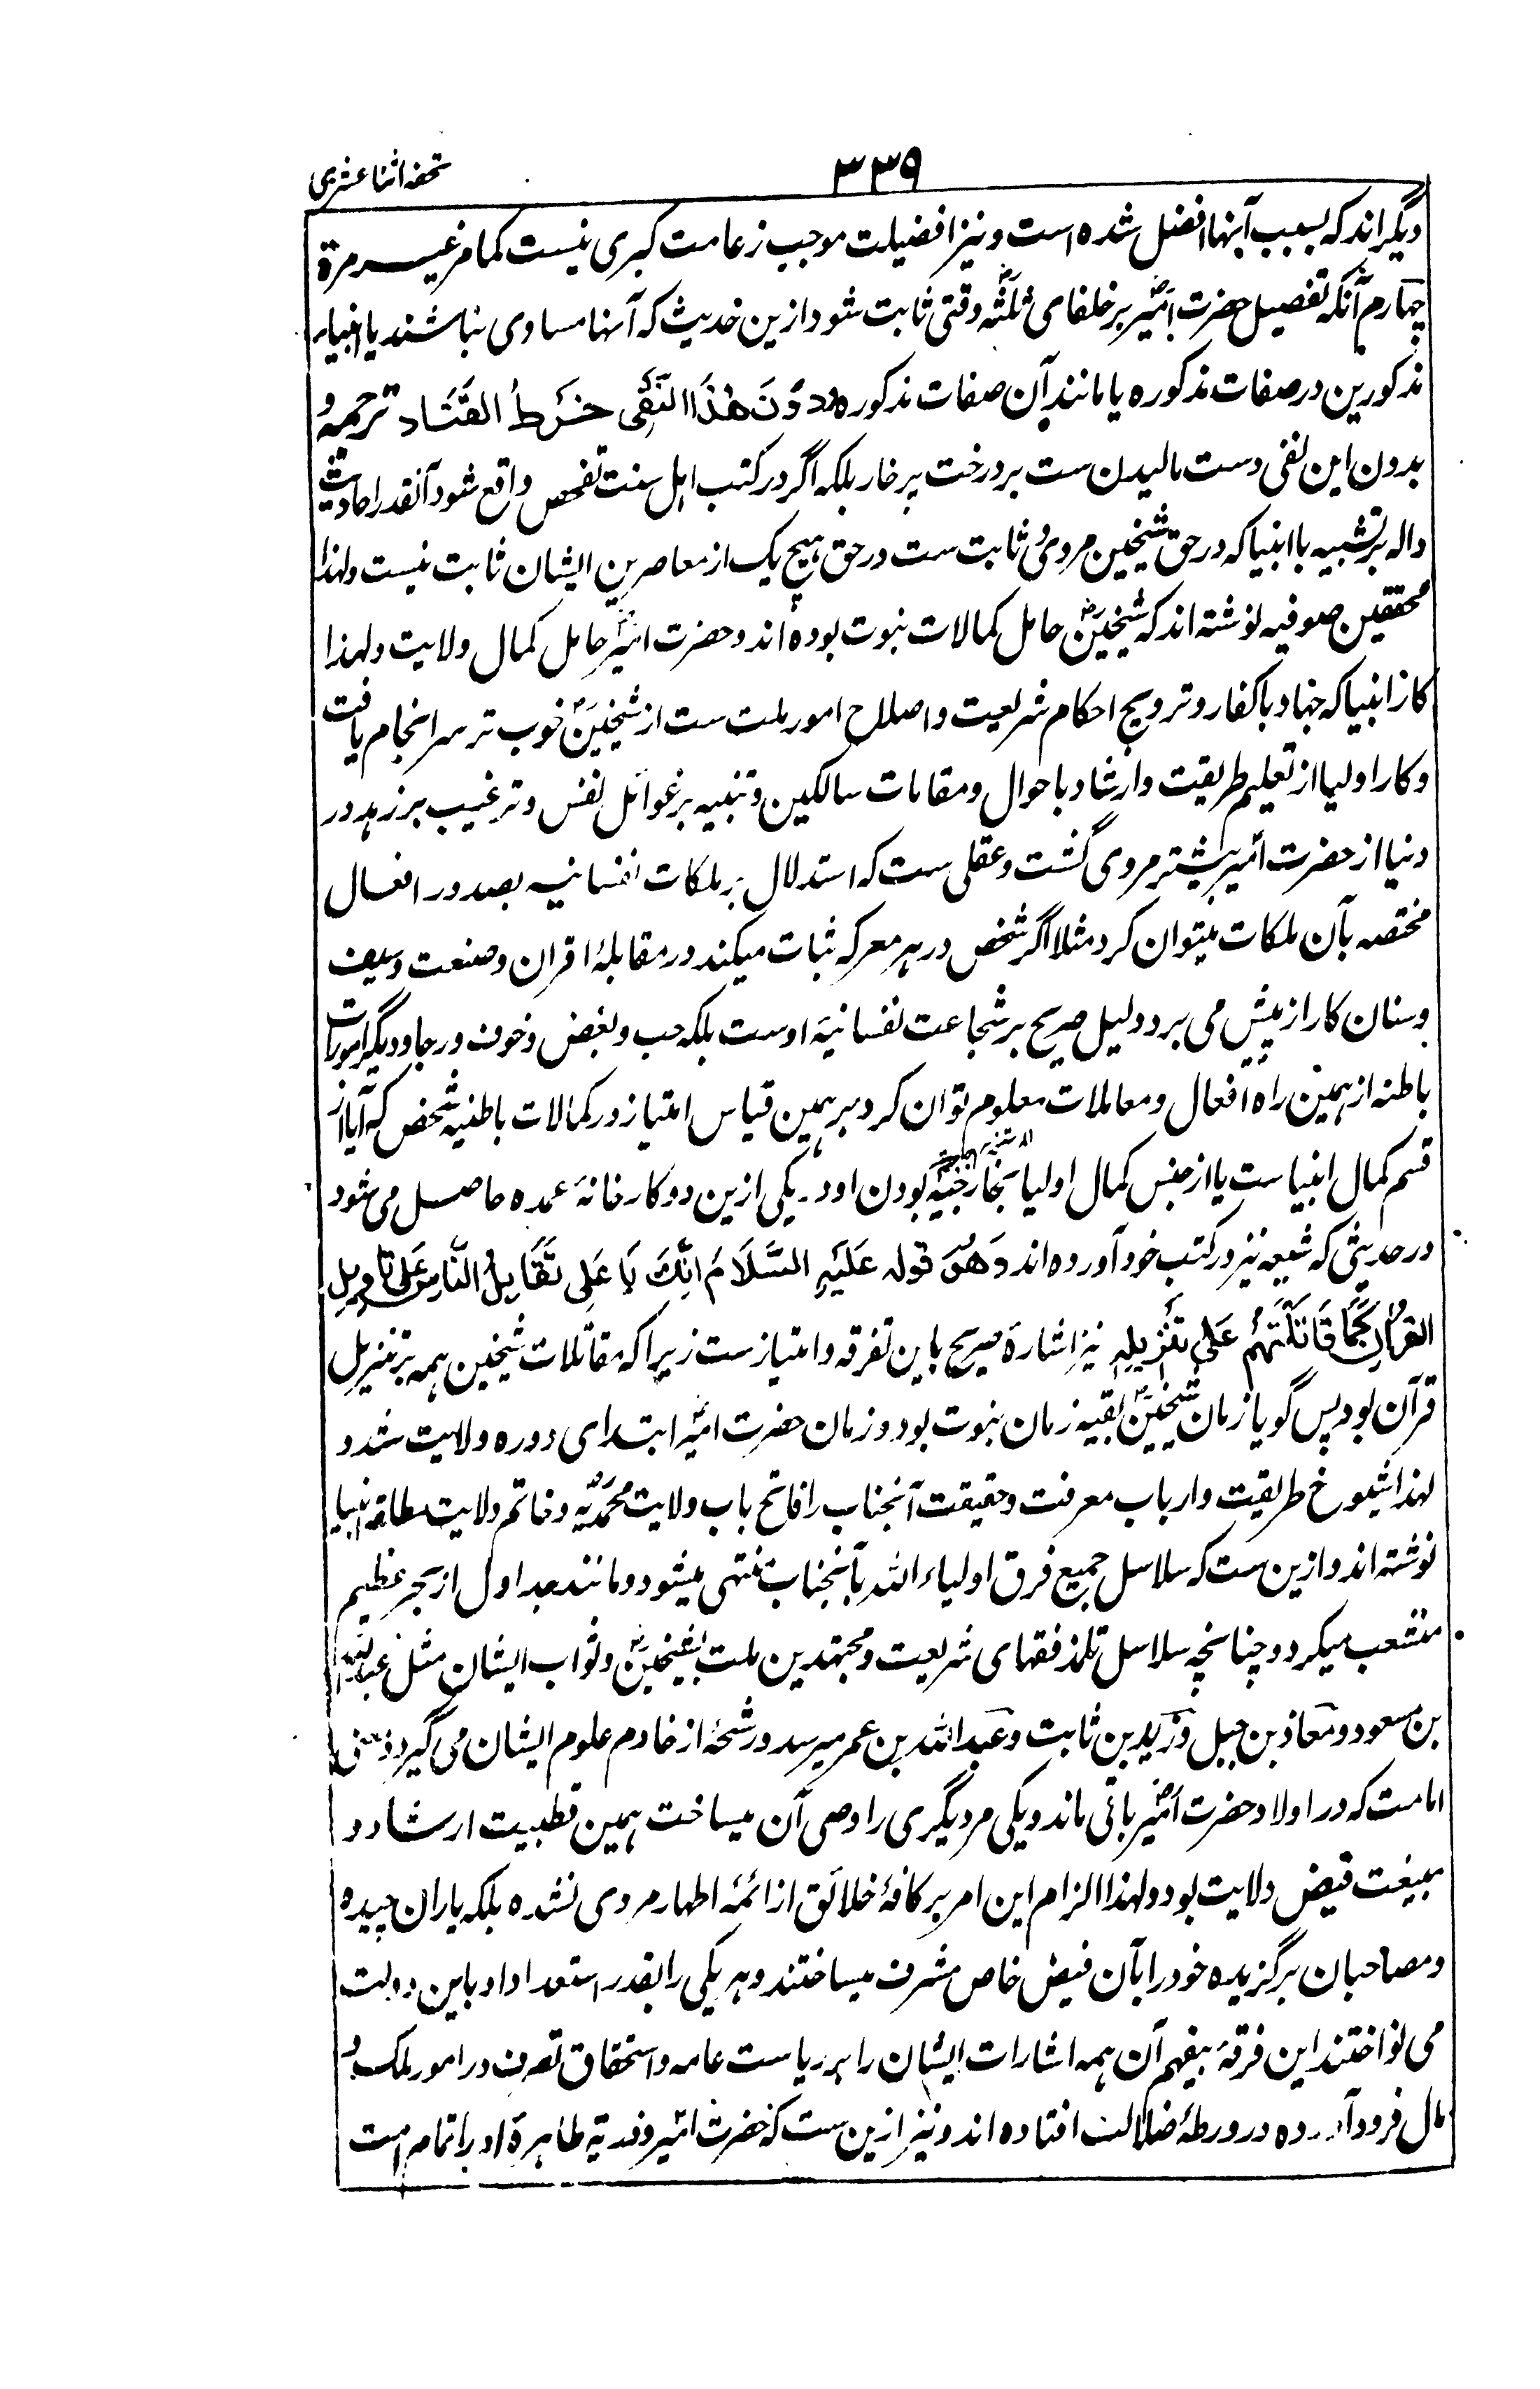 ۳۳۹
تحفه اثنا عشری
دیگراند که بسبب آنها افضل شده است و نیز افضیلت موجب زعامت کبری نیست کما مر غیر مرة
چهارم آنکه تفصیل حضرت امیرؓ بر خلفای ثلثهؓ وقتی ثابت شود ازین حدیث که آنها مساوی نباشند با انبیاء
مذکورین در صفات مذکوره یا مانند آن صفات مذکوره و دُوْنَ هٰذَا النَّفْیِ خَرْطُ القَتَادِ ترجمه و
بدون این نفی دست مالیدن ست بر درخت پر خار بلکه اگر در کتب اهل سنت تفحص واقع شود آنقدر احادیث
داله بر تشبیه با انبیا که در حق شیخین مروی و ثابت ست در حق هیچ یک از معاصرین ایشان ثابت نیست ولهذا
محققین صوفیه نوشته اند که شیخینؓ حامل کمالات نبوت بوده اند و حضرت امیرؓ حامل کمال ولایت ولهذا
کار انبیا که جهاد با کفار و ترویج احکام شریعت و اصلاح امور ملت ست از شیخینؓ خوب تر سرانجام یافت
و کار اولیا از تعلیم طریقت و ارشاد باحوال و مقامات سالکین و تنبیه بر غوائل نفس و ترغیب بر زهد در
دنیا از حضرت امیر بیشتر مروی گشت و عقلی ست که استدلال بر ملکات نفسانیه بصدور افعال
مختصه بآن ملکات میتوان کرد مثلا اگر شخص در هر معرکه ثبات میکند در مقابلهٔ اقران و صنعت و سیف
و سنان کار از پیش می برد دلیل صریح بر شجاعت نفسانیهٔ اوست بلکه حب و بغض و خوف و رجا و دیگر امورات
باطنه از همین راه افعال و معاملات معلوم توان کرد بر همین قیاس امتیاز در کمالات باطنیه شخص که آیا از
قسم کمال انبیاست یا از جنس کمال اولیا بخارجیه بودن او در یکی ازین دو کارخانهٔ عمده حاصل می شود
در حدیثی که شیعه نیز در کتب خود آورده اند وَهُوَ قوله عَلَیْهِ السَّلَامُ اِنَّكَ یَا عَلِی تُقَاتِلُ النَّاسَ عَلیٰ تَاوِیلِ
القرآنِ کَمَا قَاتَلْتَهُمْ عَلیٰ تَنْزِیلِهٖ نیز اشارهٔ صریح باین تفرقه و امتیاز ست زیرا که مقاتلات شیخین همه بر تنزیل
قرآن بود پس گویا زمان شیخینؓ بقیه زمان نبوت بود و زمان حضرت امیرؓ ابتدای دوره ولایت شد و
لهذا شیوخ طریقت و ارباب معرفت و حقیقت آنجناب را فاتح باب ولایت محمدیه و خاتم ولایت مطلقه انبیا
نوشته اند و ازین ست که سلاسل جمیع فرق اولیاء الله بآنجناب منتهی میشود و مانند جداول از بحر عظیم
منشعب میگردد چنانچه سلاسل تلمذ فقهای شریعت و مجتهدین ملت بشیخینؓ و نواب ایشان مثل عبدالله
بن مسعود و معاذ بن جبل و زید بن ثابت و عبدالله بن عمر میرسد و رشحهٔ از خادم علوم ایشان می گیرد و معنی
امامت که در اولاد حضرت امیرؓ باقی ماند و یکی مر دیگری را وصی آن میساخت همین قطبیت ارشاد و
منبعیت فیض ولایت بود ولهذا الزام این امر بر کافهٔ خلائق از ائمهٔ اطهار مروی نشده بلکه یاران چیده
و مصاحبان برگزیده خود را بآن فیض خاص مشرف میساختند و هر یکی را بقدر استعداد او باین دولت
می نواختند این فرقهٔ بیفهم آن همه اشارات ایشان را بر ریاست عامه و استحقاق تصرف در امور ملک و
مال فرود آورده در ورطهٔ ضلالت افتاده اند و نیز ازین ست که حضرت امیر و ذریهٔ طاهرهٔ او را تمام امت